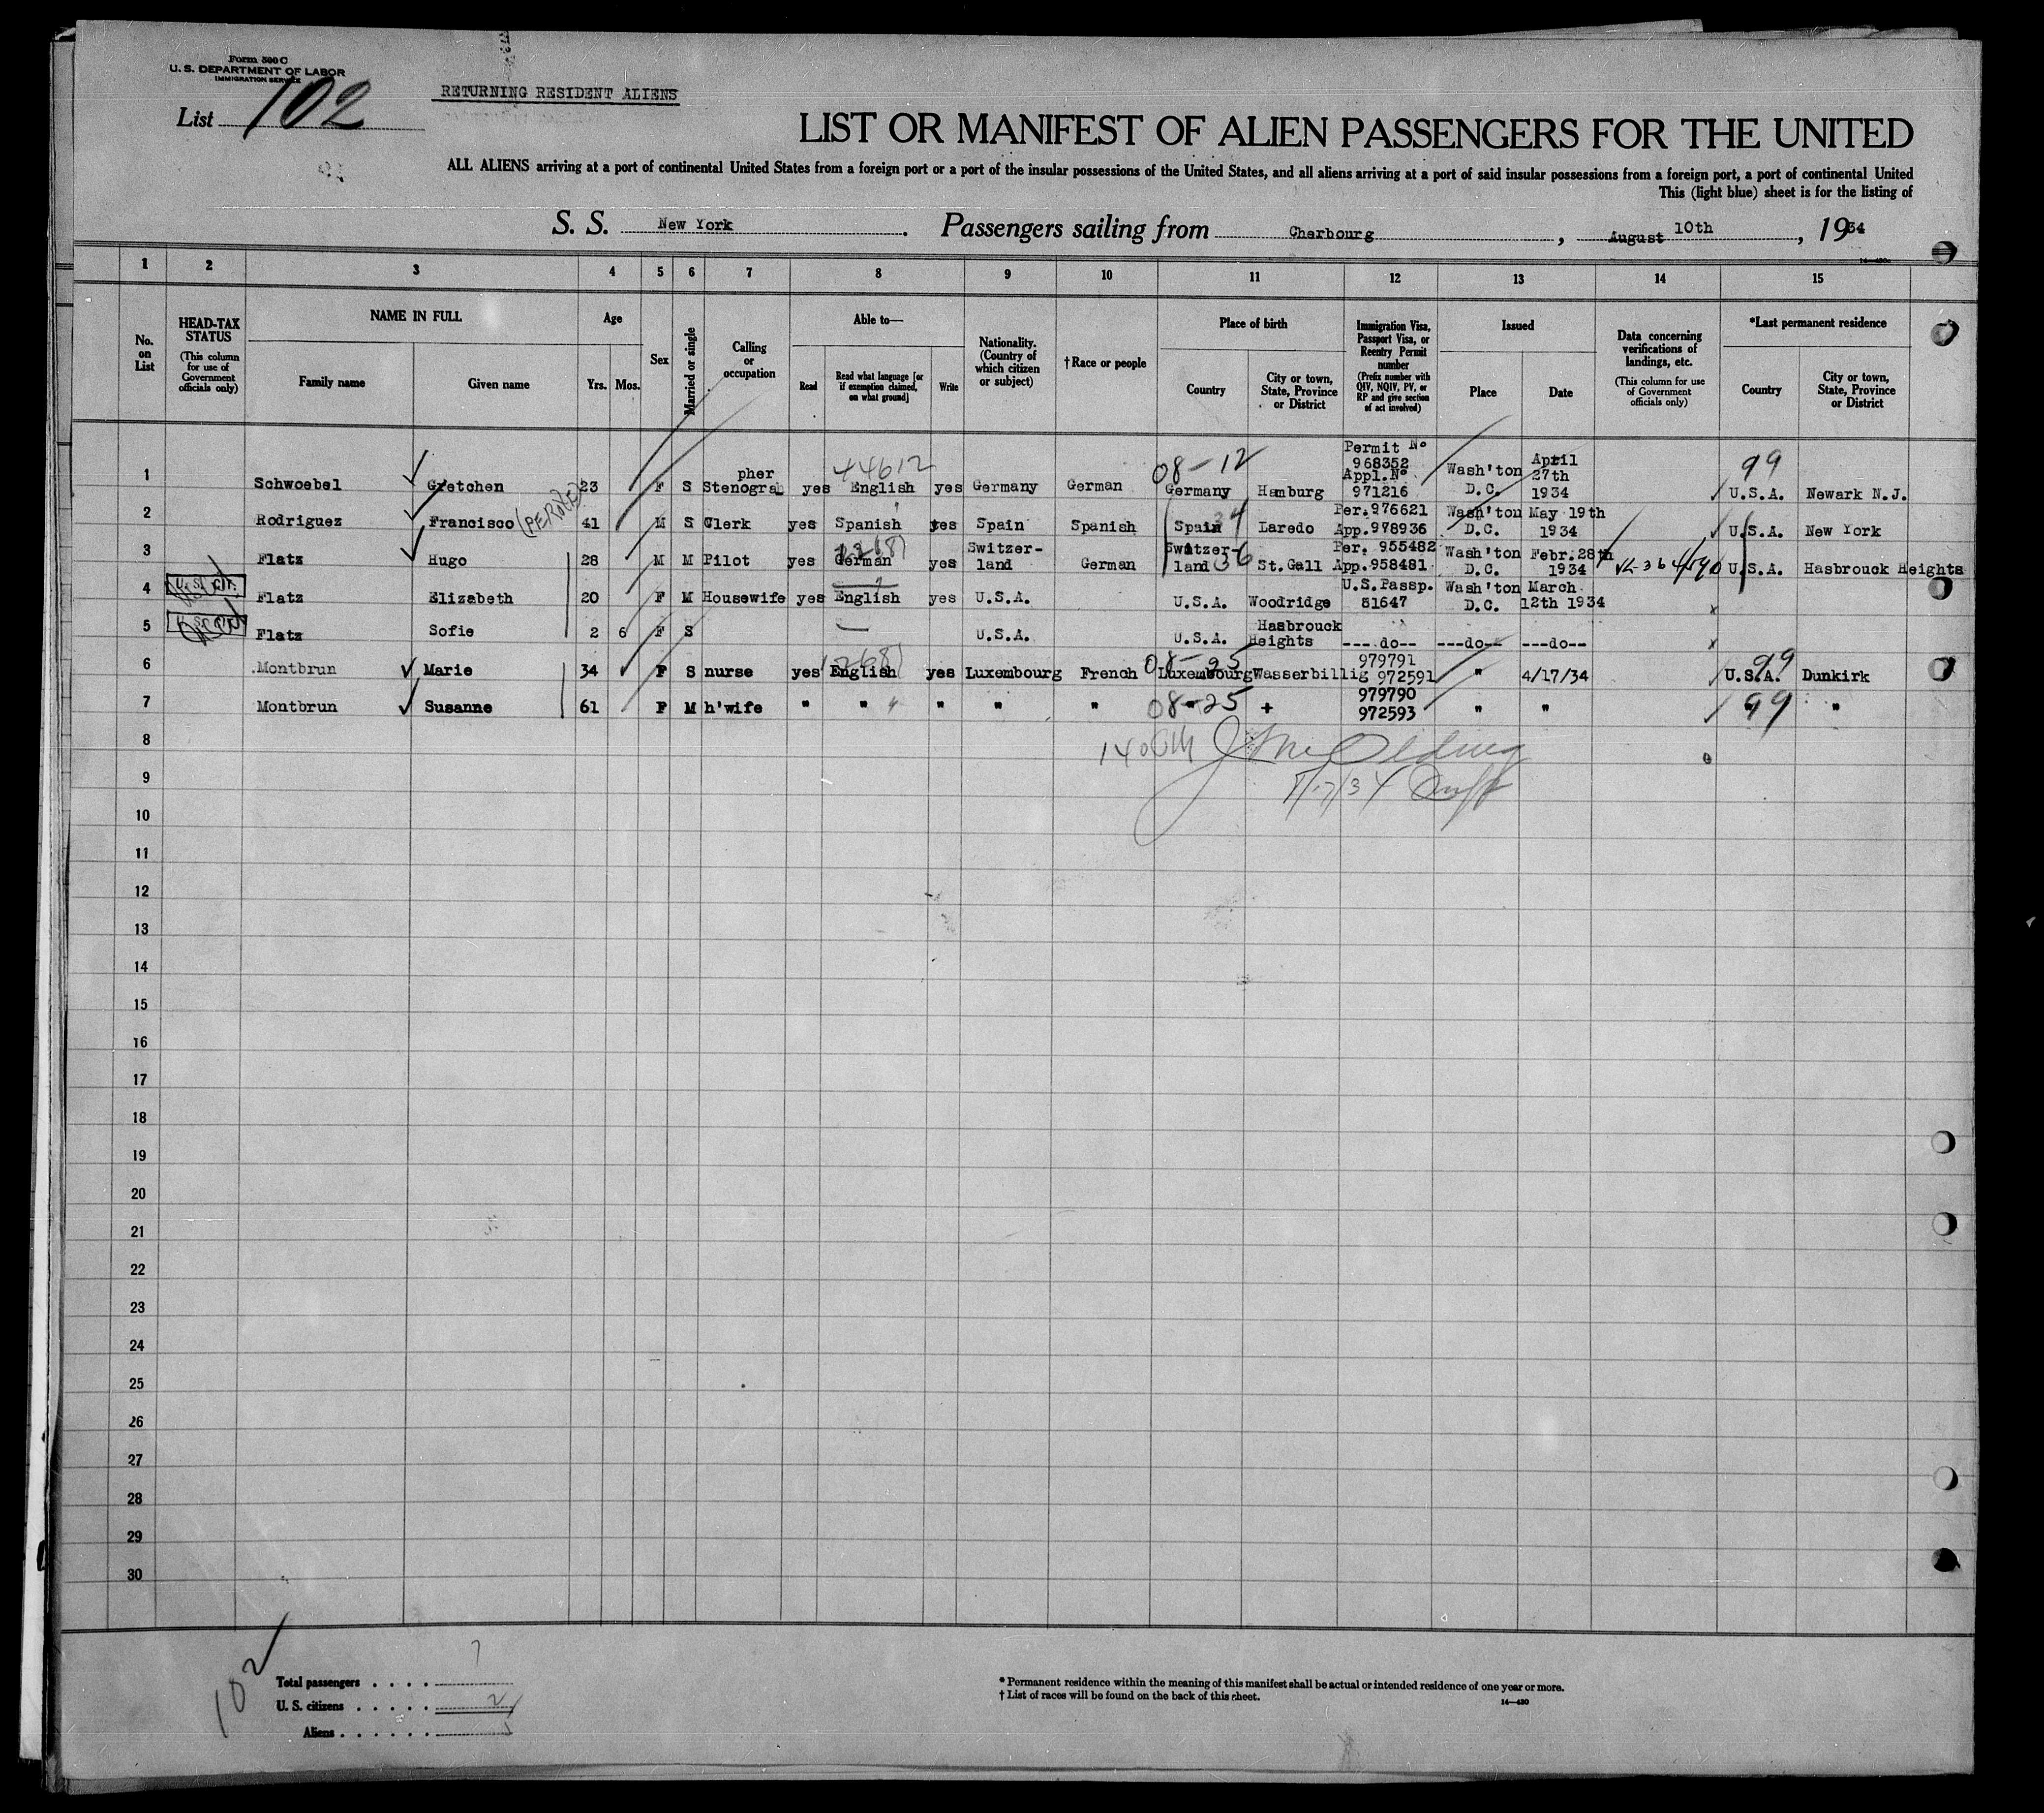 Form 500 C
U. S. DEPARTMENT OF LABOR
IMMIGRATION SERVICE
List 102
RETURNING RESIDENT ALIENS
LIST OR MANIFEST OF ALIEN PASSENGERS FOR THE UNITED
ALL ALIENS arriving at a port of continental United States from a foreign port or a port of the insular possessions of the United States, and all aliens arriving at a port of said insular possessions from a foreign port, a port of continental United
This (light blue) sheet is for the listing of
S. S. New York. Passengers sailing from Cherbourg, August 10th, 1934
14—480
1 2 3 4 5 6 7 8 9 10 11 12 13 14 15
No. on List
HEAD-TAX STATUS
(This column for use of Government officials only)
NAME IN FULL
Family name
Given name
Age
Yrs. Mos.
Sex
Married or single
Calling or occupation
Able to—
Read
Read what language [or if exemption claimed, on what ground]
Write
Nationality. (Country of which citizen or subject)
†Race or people
Place of birth
Country
City or town, State, Province or District
Immigration Visa, Passport Visa, or Reentry Permit number
(Prefix number with QIV, NQIV, PV, or RP and give section of act involved)
Issued
Place
Date
Data concerning verifications of landings, etc.
(This column for use of Government officials only)
*Last permanent residence
Country
City or town, State, Province or District
1 Schwoebel Gretchen 23 F S Stenogra pher yes English 44612 yes Germany German 08-12 Germany Hamburg Permit No 968352 Appl.No 971216 Wash'ton D.C. April 27th 1934 99 U.S.A. Newark N.J.
2 Rodriguez Francisco 41 M S Clerk yes Spanish yes Spain Spanish Spain Laredo Per. 976621 App. 978936 Wash'ton D.C. May 19th 1934 U.S.A. New York
3 Flatz Hugo 28 M M Pilot yes German yes Switzer-land German Switzer-land 36 St. Gall Per. 955482 App. 958481 Wash'ton D.C. Febr. 28th 1934 U.S.A. Hasbrouck Heights
4 U.S. CIT. Flatz Elizabeth 20 F M Housewife yes English yes U.S.A. U.S.A. Woodridge U.S.Passp. 51647 Wash'ton D.C. March 12th 1934 x
5 Flatz Sofie 2 6 F S U.S.A. U.S.A. Hasbrouck Heights ----do-- ---do-- ---do-- x
6 Montbrun Marie 34 F S nurse yes English yes Luxembourg French 08-25 Luxembourg Wasserbillig 979791 972591 " 4/17/34 99 U.S.A. Dunkirk
7 Montbrun Susanne 61 F M h'wife " " " " " 08-25 " + 979790 972593 " " 99 "
8
9
10
11
12
13
14
15
16
17
18
19
20
21
22
23
24
25
26
27
28
29
30
102
Total passengers . . . . 7
U. S. citizens . . . . . 2
Aliens . . . . . . 5
* Permanent residence within the meaning of this manifest shall be actual or intended residence of one year or more.
† List of races will be found on the back of this sheet.
14—480